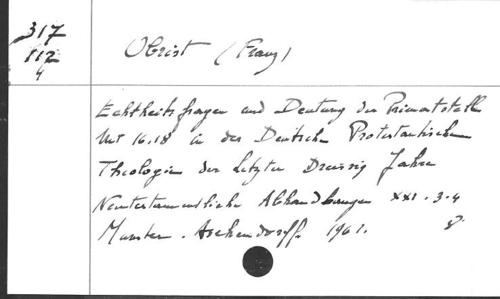 317
112
4
Obrist (Franz)
Echtheitsfragen und Deutung der Primatstelle
Mt 16.18 in der Deutsche Protestantischen
Theologie der Letzten Dreissig Jahre
Neutestamentliche Abhandlungen XXI. 3-4
Munster. Aschendorff. 1961. 8°